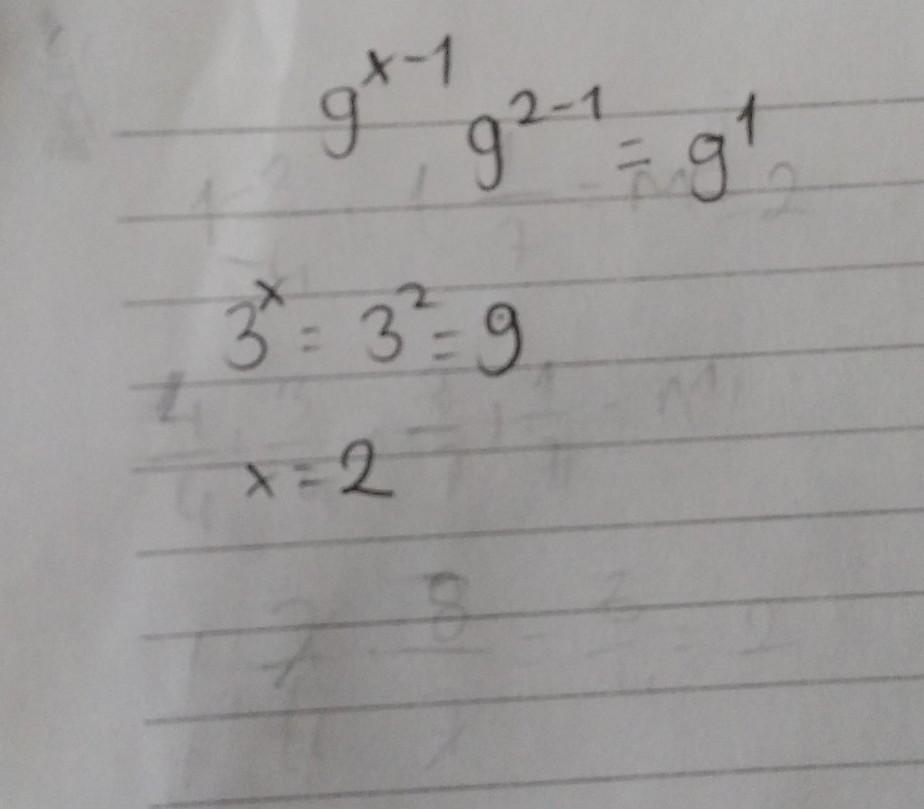 9^{x-1} 9^{2-1} = 9^1
3^x = 3^2 = 9
x = 2